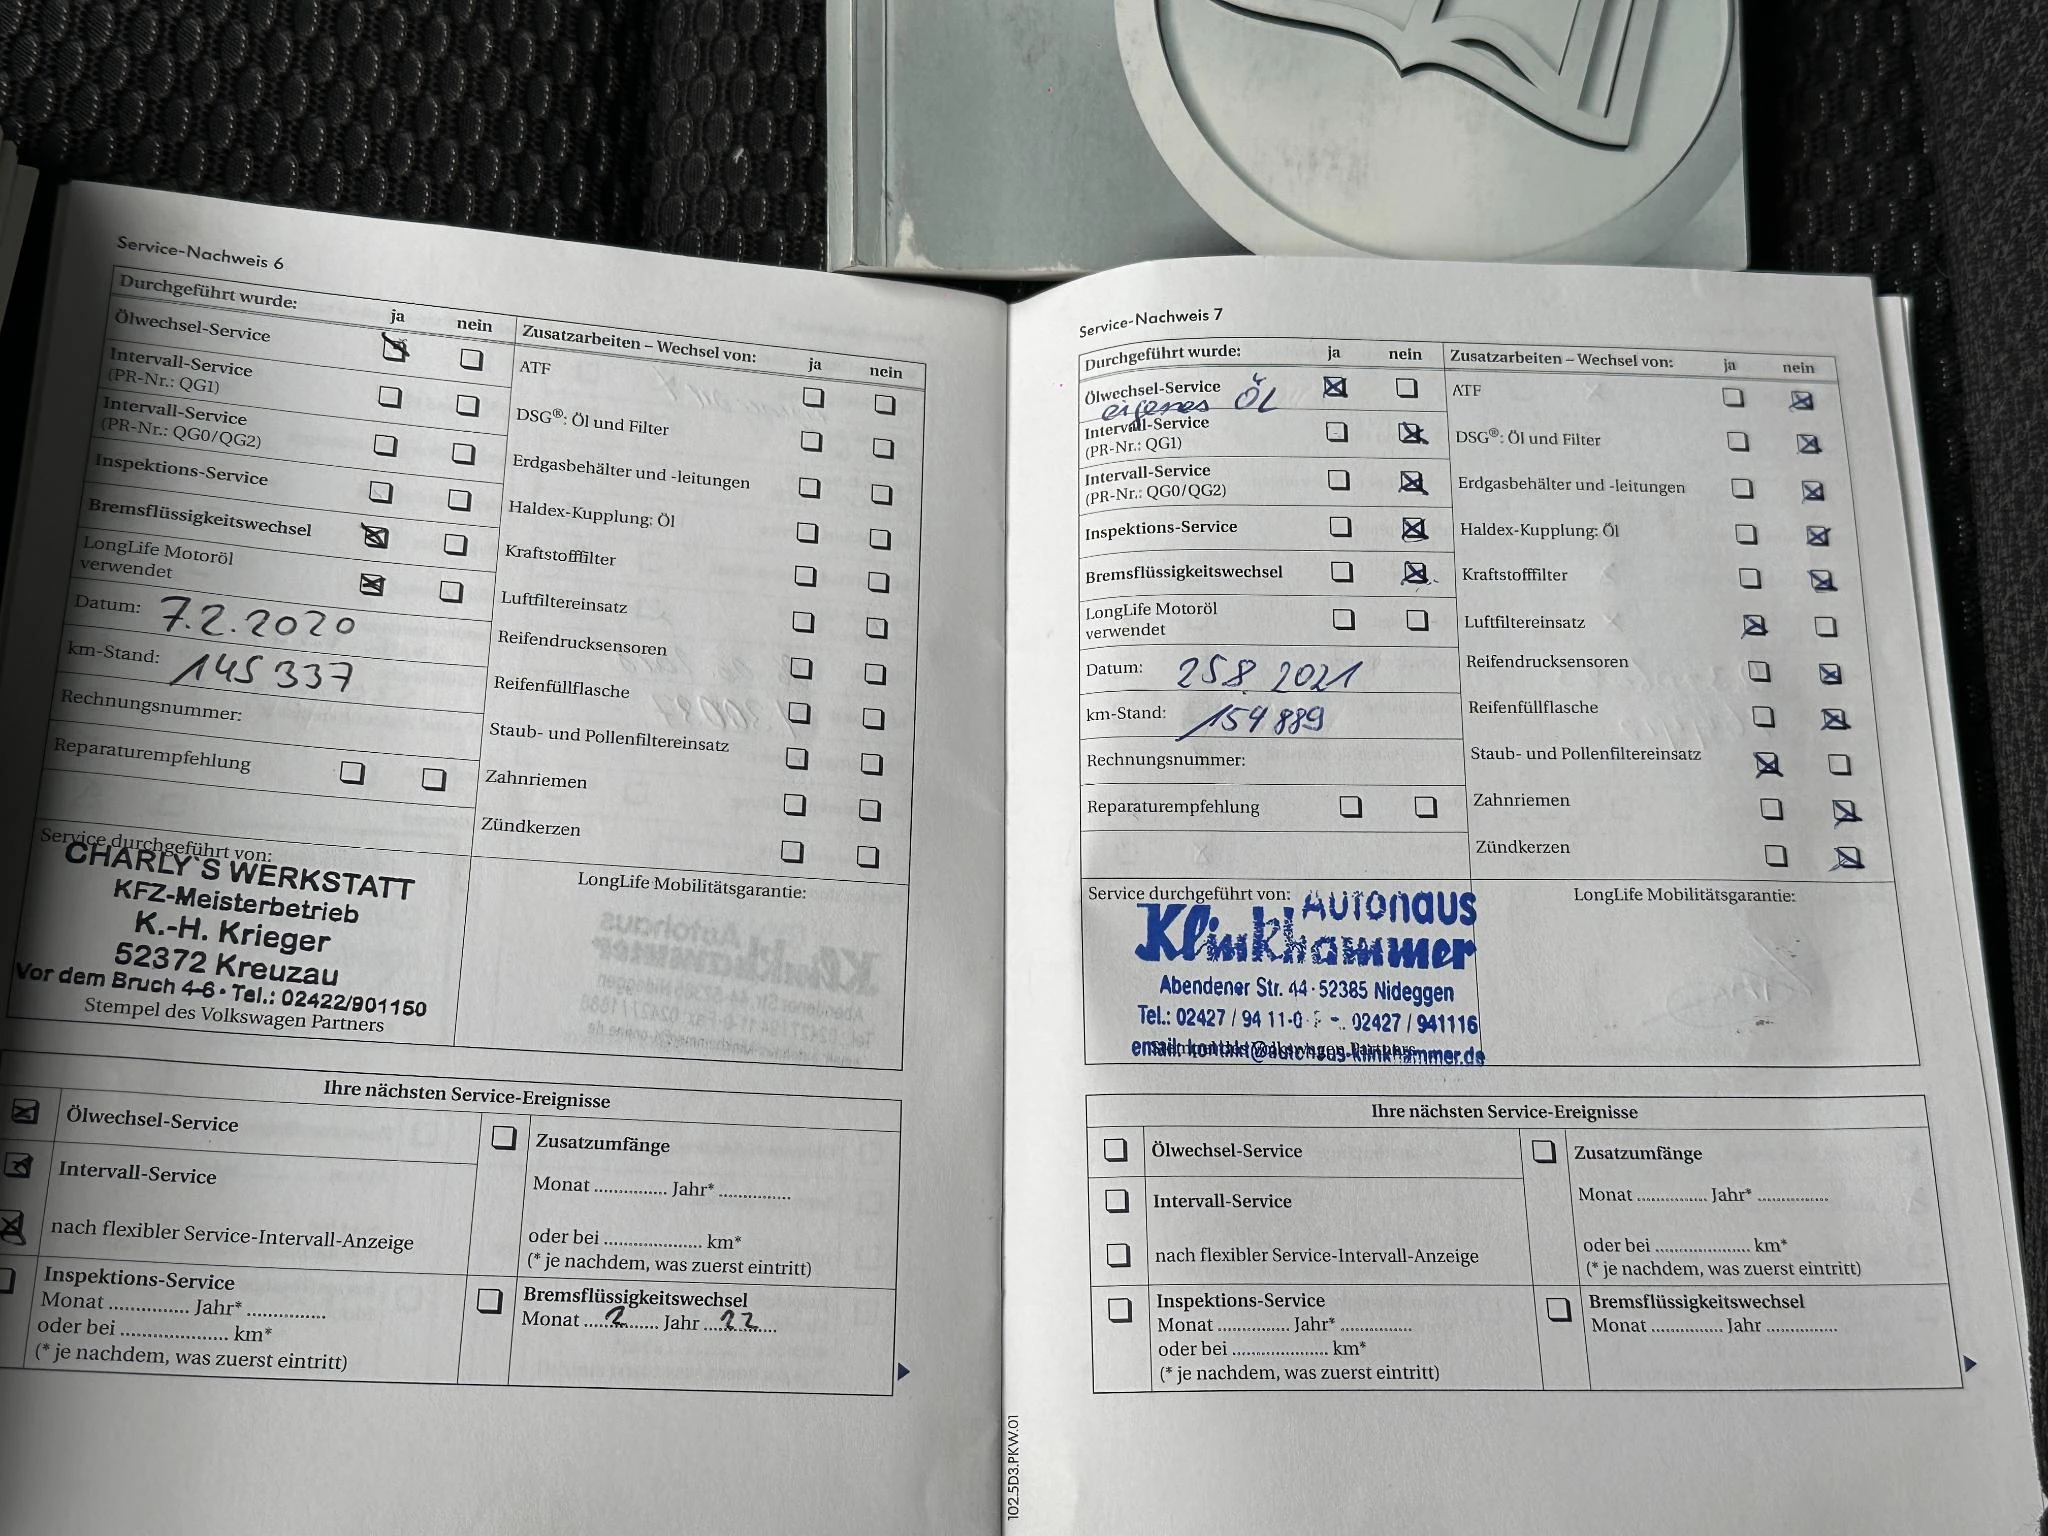 Service-Nachweis 6
Durchgeführt wurde: ja nein
Ölwechsel-Service
Intervall-Service
(PR-Nr.: QG1)
Intervall-Service
(PR-Nr.: QG0/QG2)
Inspektions-Service
Bremsflüssigkeitswechsel
LongLife Motoröl
verwendet
Datum: 7.2.2020
km-Stand: 145 337
Rechnungsnummer:
Reparaturempfehlung
Zusatzarbeiten – Wechsel von: ja nein
ATF
DSG®: Öl und Filter
Erdgasbehälter und -leitungen
Haldex-Kupplung: Öl
Kraftstofffilter
Luftfiltereinsatz
Reifendrucksensoren
Reifenfüllflasche
Staub- und Pollenfiltereinsatz
Zahnriemen
Zündkerzen
Service durchgeführt von:
CHARLY'S WERKSTATT
KFZ-Meisterbetrieb
K.-H. Krieger
52372 Kreuzau
Vor dem Bruch 4-6 • Tel.: 02422/901150
Stempel des Volkswagen Partners
LongLife Mobilitätsgarantie:
Ihre nächsten Service-Ereignisse
Ölwechsel-Service
Intervall-Service
nach flexibler Service-Intervall-Anzeige
Inspektions-Service
Monat ............... Jahr* ...............
oder bei .................... km*
(* je nachdem, was zuerst eintritt)
Zusatzumfänge
Monat ............... Jahr* ...............
oder bei .................... km*
(* je nachdem, was zuerst eintritt)
Bremsflüssigkeitswechsel
Monat ....2....... Jahr ...22....
Service-Nachweis 7
Durchgeführt wurde: ja nein
Ölwechsel-Service
eigenes ÖL
Intervall-Service
(PR-Nr.: QG1)
Intervall-Service
(PR-Nr.: QG0/QG2)
Inspektions-Service
Bremsflüssigkeitswechsel
LongLife Motoröl
verwendet
Datum: 25 8 2021
km-Stand: 154 889
Rechnungsnummer:
Reparaturempfehlung
Zusatzarbeiten – Wechsel von: ja nein
ATF
DSG®: Öl und Filter
Erdgasbehälter und -leitungen
Haldex-Kupplung: Öl
Kraftstofffilter
Luftfiltereinsatz
Reifendrucksensoren
Reifenfüllflasche
Staub- und Pollenfiltereinsatz
Zahnriemen
Zündkerzen
Service durchgeführt von:
Autohaus
Klinkhammer
Abendener Str. 44 · 52385 Nideggen
Tel.: 02427 / 94 11-0 · 02427 / 941116
email: kontakt@autohaus-klinkhammer.de
LongLife Mobilitätsgarantie:
Ihre nächsten Service-Ereignisse
Ölwechsel-Service
Intervall-Service
nach flexibler Service-Intervall-Anzeige
Inspektions-Service
Monat ............... Jahr* ...............
oder bei .................... km*
(* je nachdem, was zuerst eintritt)
Zusatzumfänge
Monat ............... Jahr* ...............
oder bei .................... km*
(* je nachdem, was zuerst eintritt)
Bremsflüssigkeitswechsel
Monat ............... Jahr ...............
102.5D3.PKW.01